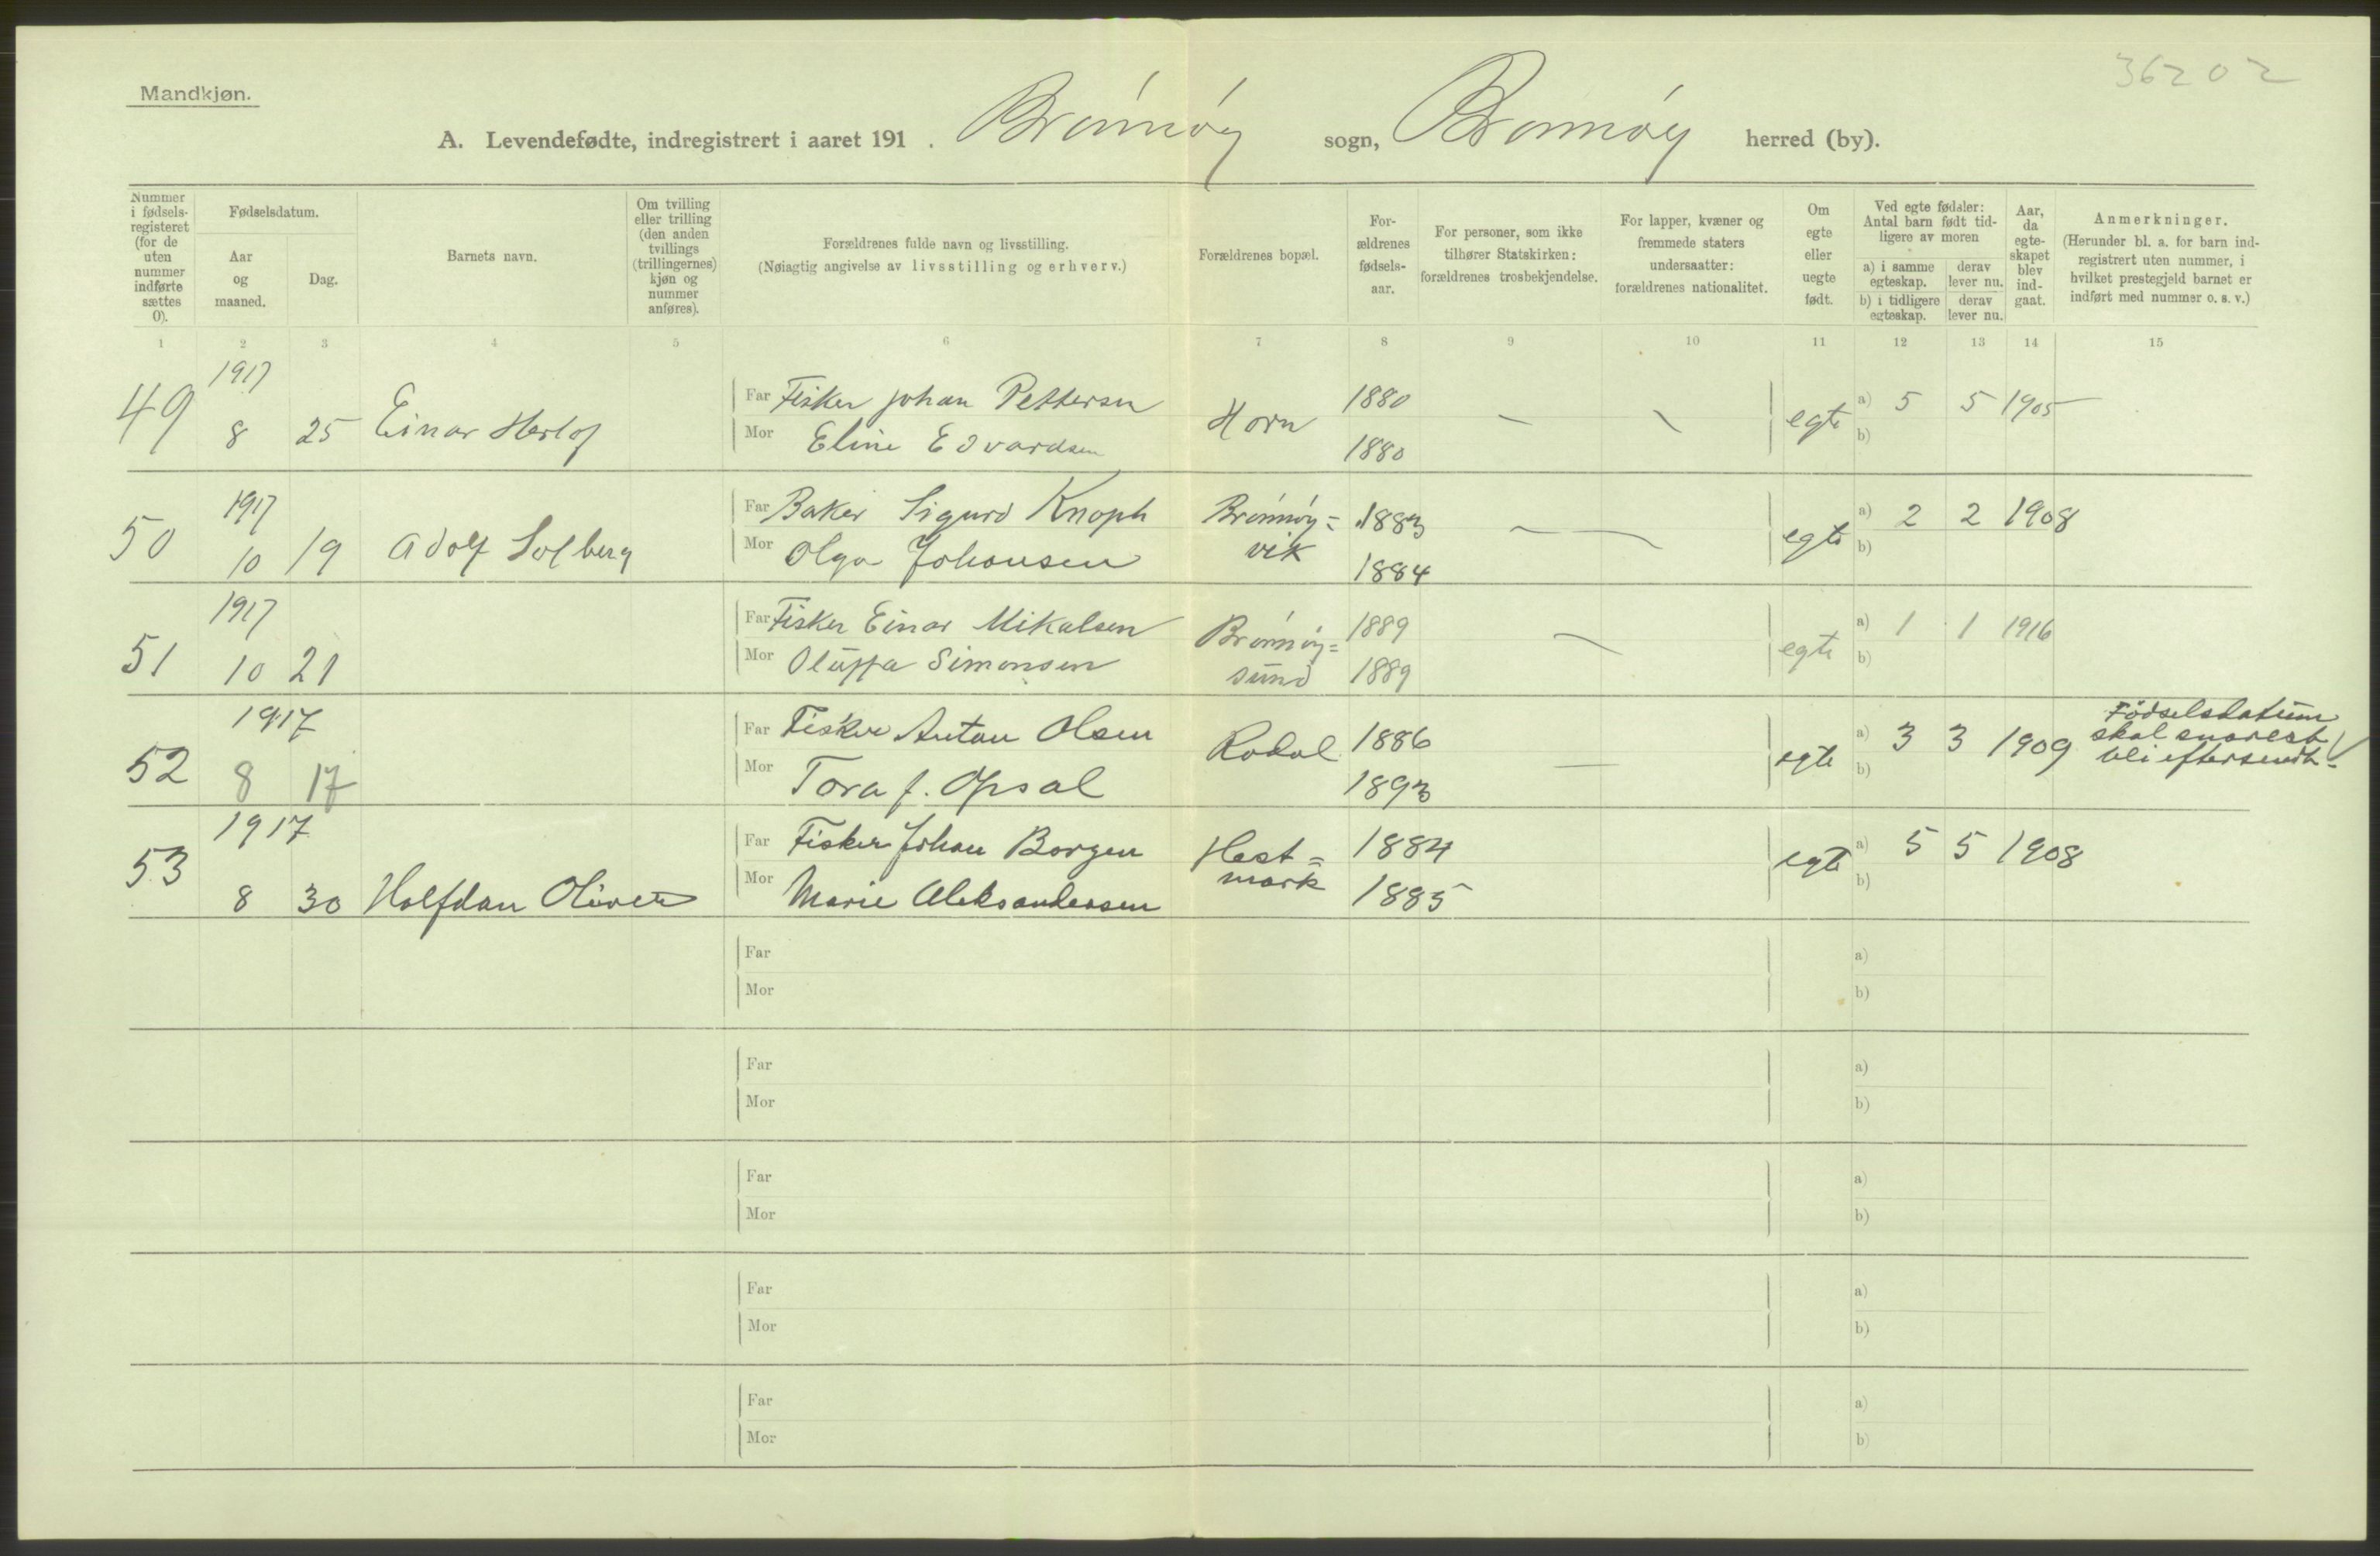 36202
Mandkjøn.
A. Levendefødte, indregistrert i aaret 191 . Brønnøy sogn, Brønnøy herred (by).
Nummer i fødsels-registeret (for de uten nummer indførte sættes 0).
Fødselsdatum.
Aar og maaned.
Dag.
Barnets navn.
Om tvilling eller trilling (den anden tvillings (trillingernes) kjøn og nummer anføres).
Forældrenes fulde navn og livsstilling.
(Nøiagtig angivelse av livsstilling og erhverv.)
Forældrenes bopæl.
For-ældrenes fødsels-aar.
For personer, som ikke tilhører Statskirken: forældrenes trosbekjendelse.
For lapper, kvæner og fremmede staters undersaatter: forældrenes nationalitet.
Om egte eller uegte født.
Ved egte fødsler: Antal barn født tid-ligere av moren
a) i samme egteskap.
derav lever nu.
b) i tidligere egteskap.
derav lever nu.
Aar, da egte-skapet blev ind-gaat.
Anmerkninger.
(Herunder bl. a. for barn ind-registrert uten nummer, i hvilket prestegjeld barnet er indført med nummer o. s. v.)
1 2 3 4 5 6 7 8 9 10 11 12 13 14 15
1917
49 8 25 Einar Herlof
Far Fisker Johan Pettersen
Mor Eline Edvardsen
Horn 1880 1880 – – egte a) 5 5 1905
b)
1917
50 10 19 Adolf Solberg
Far Baker Sigurd Knoph
Mor Olga Johansen
Brønnøy=
vik
1883 1884 – – egte a) 2 2 1908
b)
1917
51 10 21
Far Fisker Einar Mikalsen
Mor Oluffa Simonsen
Brønnøy=
sund
1889 1889 – egte a) 1 1 1916
b)
1917
52 8 17
Far Fisker Anton Olsen
Mor Tora f. Opsal
Rodal 1886 1893 – egte a) 3 3 1909
b)
Fødselsdatum
skal snarest
bli eftersendt.
1917
53 8 30 Halfdan Oliver
Far Fisker Johan Borgen
Mor Marie Aleksandersen
Hest=
mark
1884 1885 egte a) 5 5 1908
b)
Far a)
Mor b)
Far a)
Mor b)
Far a)
Mor b)
Far a)
Mor b)
Far a)
Mor b)